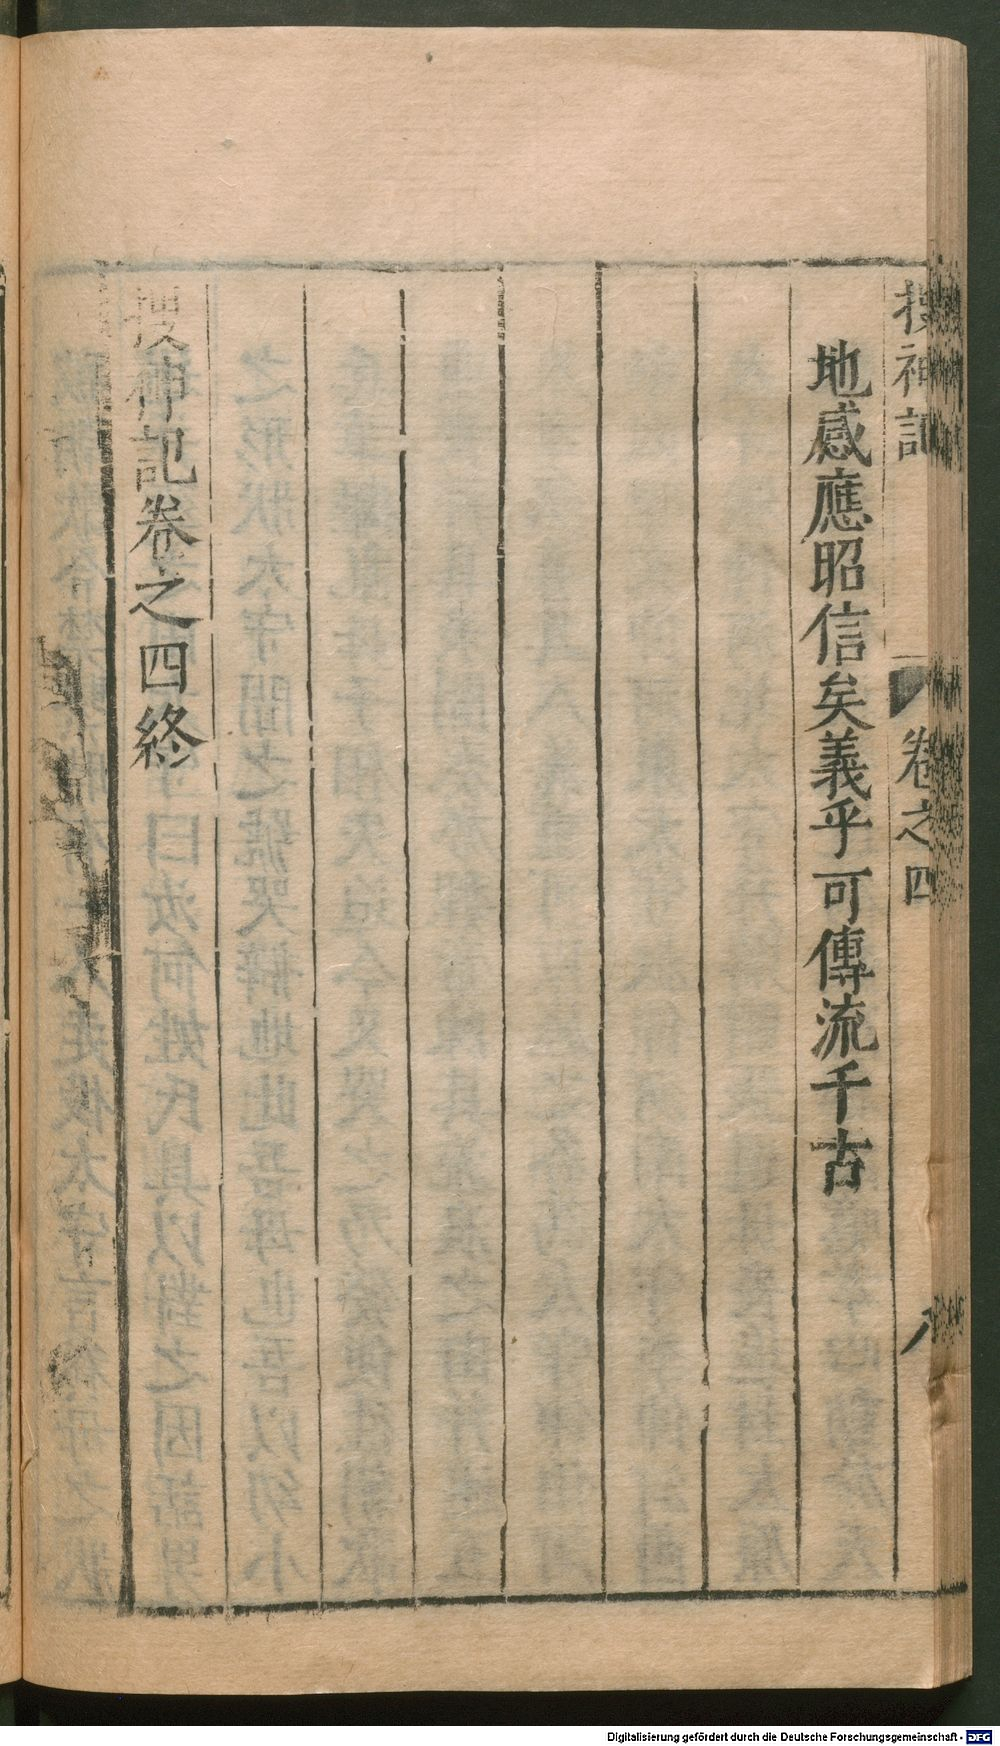 搜神記 卷之四 八
地感應昭信矣義乎可傳流千古
搜神記卷之四終
Digitalisierung gefördert durch die Deutsche Forschungsgemeinschaft - DFG